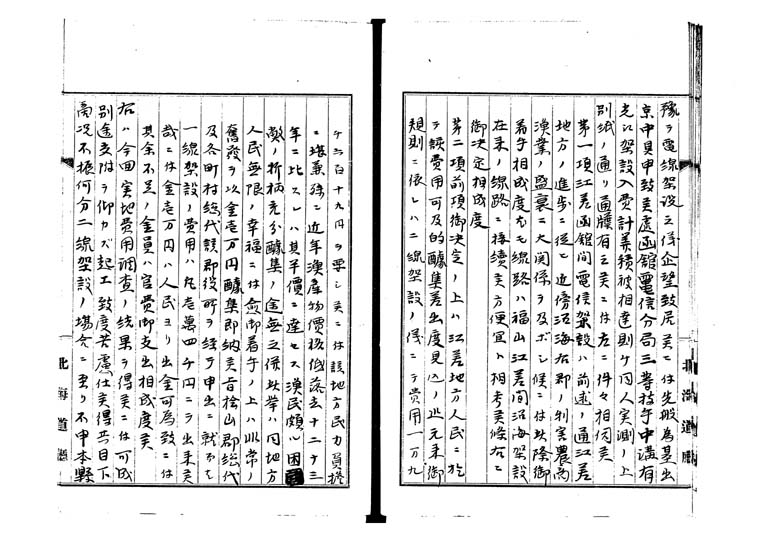 豫テ電線架設之儀企望致居候ニ付先般為差出
京中具申致候處函館電信分局三等技手中溝有
先ニ架設入費計算績被相達則チ同人実測ノ上
別紙ノ通リ通牒有之候ニ付左ニ件々相伺候
第一項江差函館間電信架設ハ前述ノ通江差
地方ノ進歩ニ従ヒ近傍沿海右郡ノ利害農商
漁業ノ盛衰ニ大関係ヲ及ボシ候ニ付此際御
着手相成度尤モ線路ハ福山江差間沿海架設
在来ノ線路ニ接続候方便宜ト相考候條右ニ
御決定相成度
第二項前項御決定ノ上ハ江差地方人民ニ於
テ該費用可及的醵集差出度見込ノ処元来御
規則ニ依レハ二線架設ノ儀ニテ費用一万九
千三百十九円ヲ要シ候ニ付該地方民力負擔
ニ堪兼殊ニ近年漁産物價格低落去十二十三
年ニ比スレハ其半價ニ達セス漁民頗ル困
敝ノ折柄充分醵集ノ途無之併此挙ハ同地方
人民無限ノ幸福ニ付愈御着手ノ上ハ非常ノ
奮発ヲ以金壱万円醵集即納候旨桧山郡総代
及各町村総代該郡役所ヲ経テ申出ニ就テハ
一線架設ノ費用ハ凡壱萬四千円ニテ出来候
哉ニ付金壱万円ハ人民ヨリ出金可為致ニ付
其余不足ノ金員ハ官費御支出相成度候
右ハ今回実地費用調査ノ結果ヲ得候ニ付可成
別途交附ヲ仰カズ起工致度苦慮仕候得共目下
商況不振何分二線架設ノ場合ニ至リ不申本縣
北海道廳
北海道廳